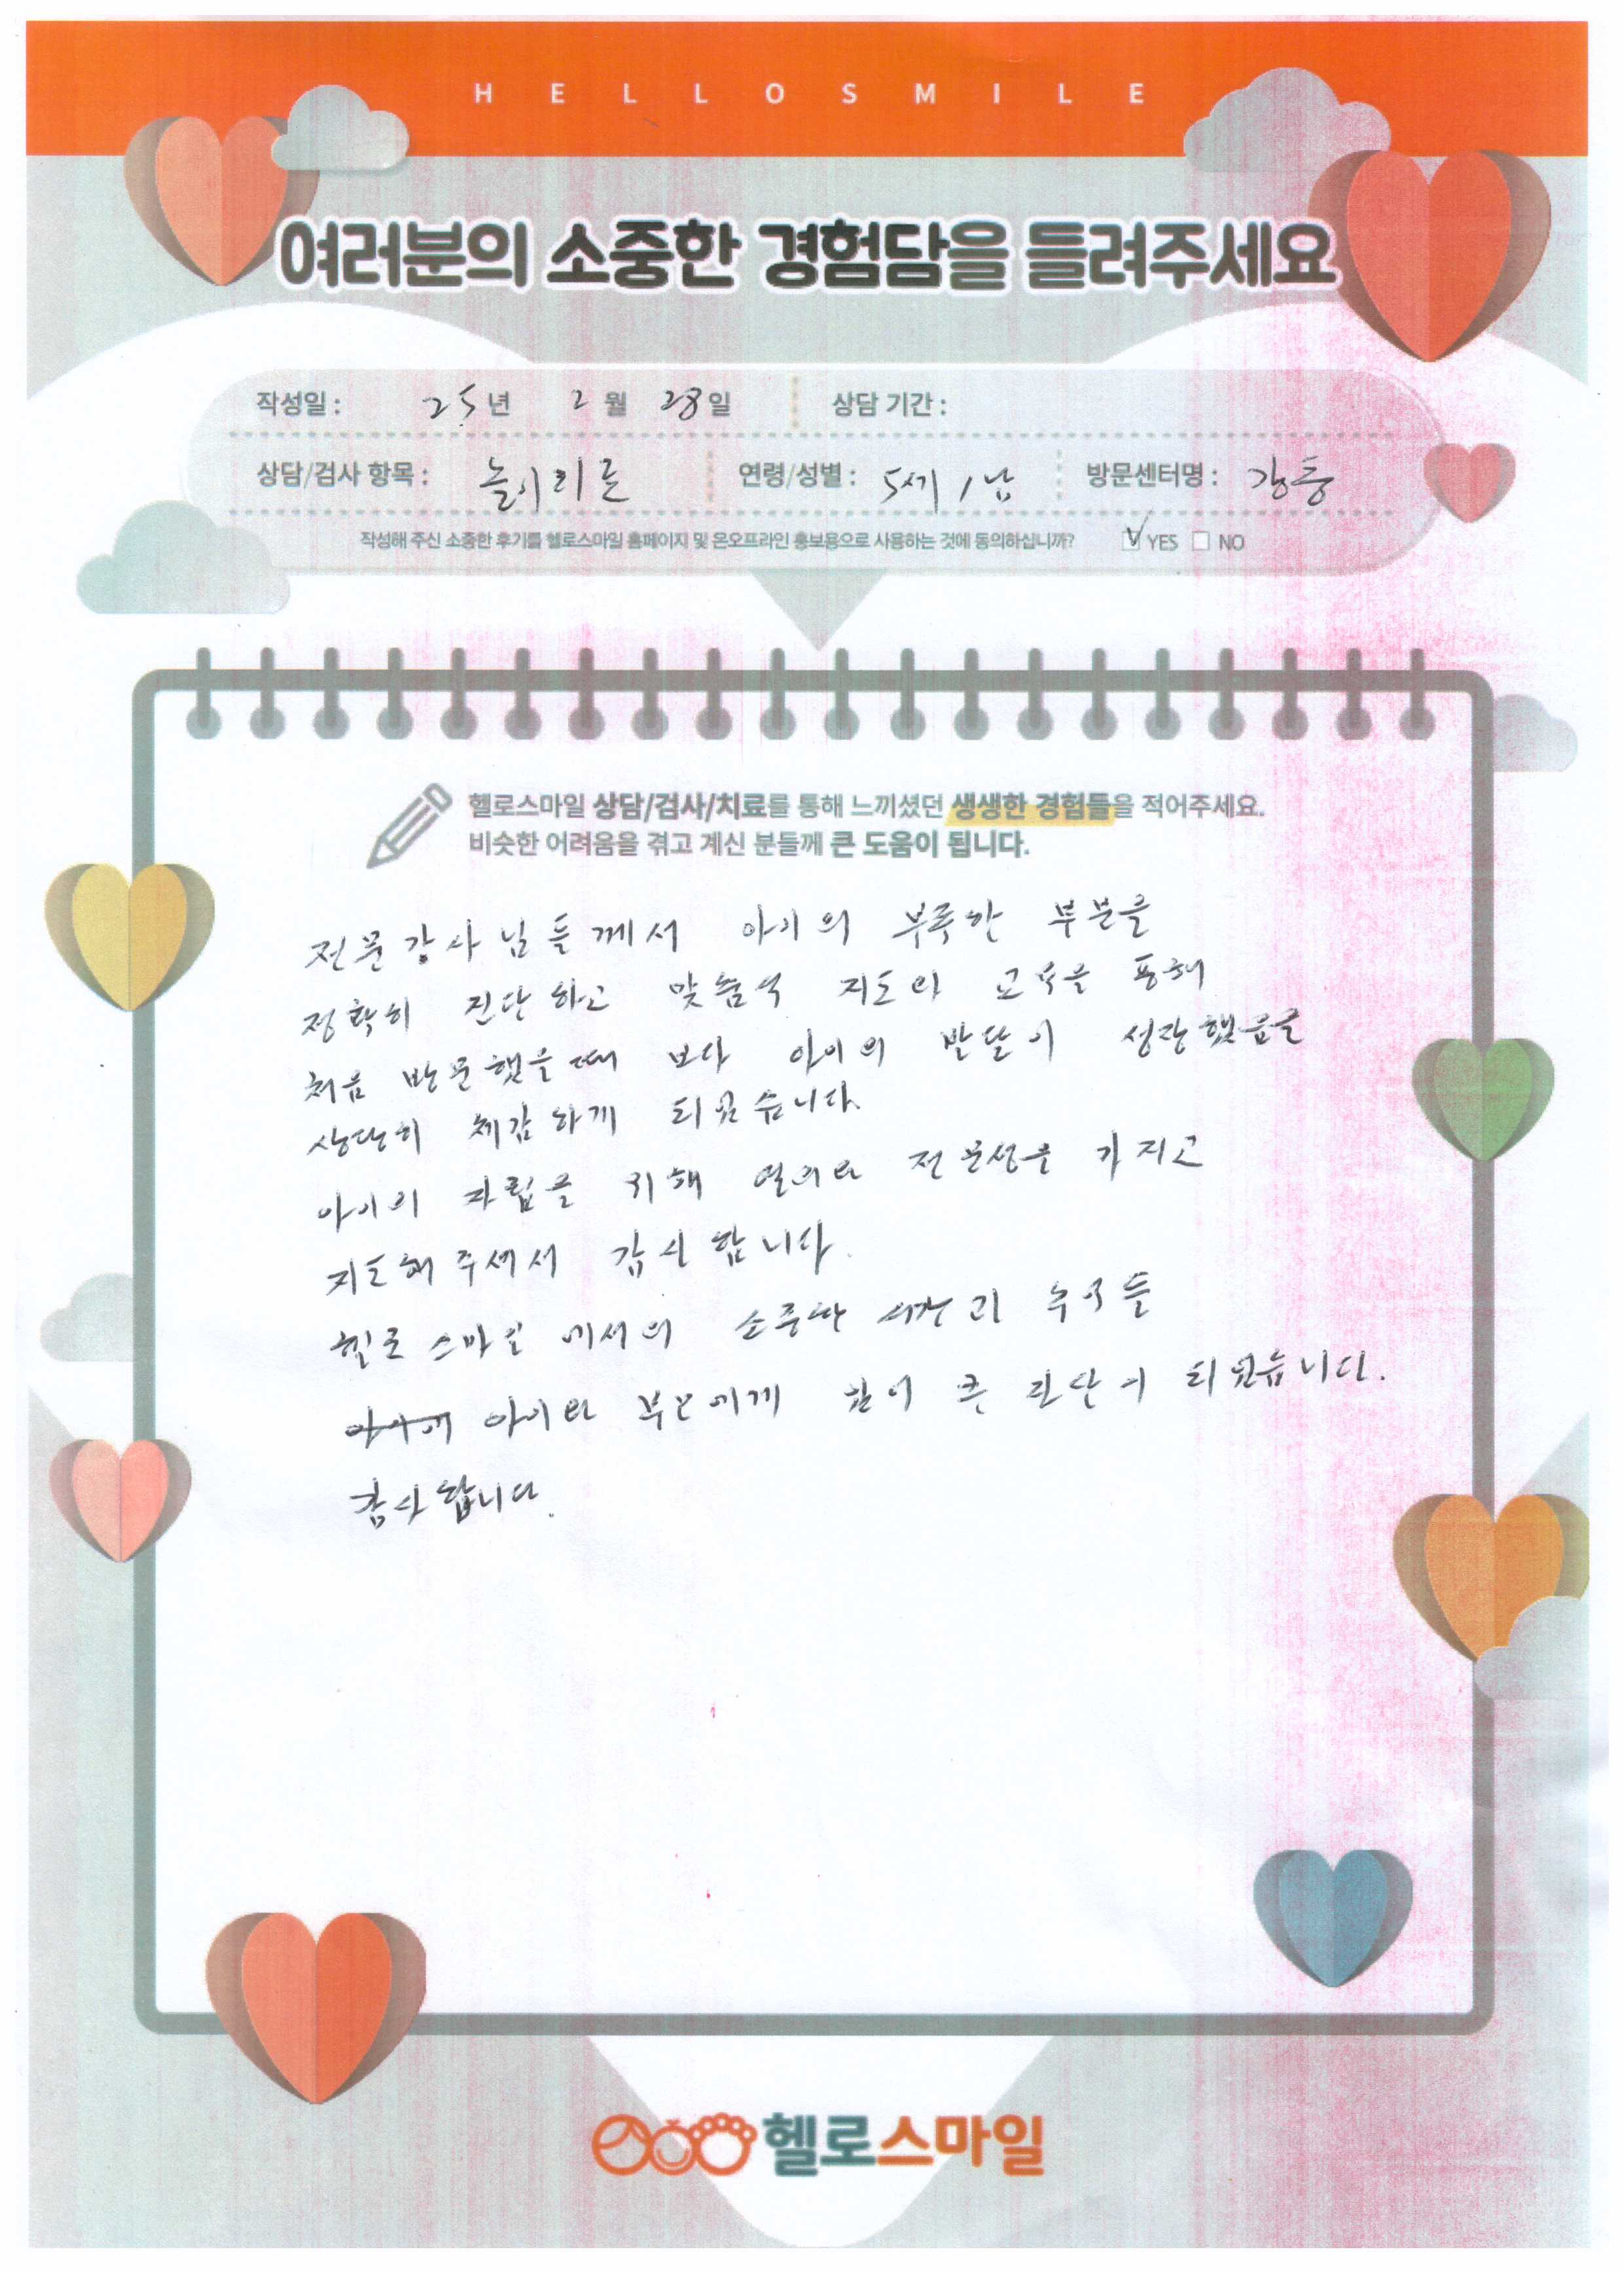 HELLOSMILE
여러분의 소중한 경험담을 들려주세요
작성일 : 25년 2월 28일 상담 기간 :
상담/검사 항목 : 놀이치료 연령/성별 : 5세 / 남 방문센터명 : 강동
작성해 주신 소중한 후기를 헬로스마일 홈페이지 및 온오프라인 홍보용으로 사용하는 것에 동의하십니까? YES NO
헬로스마일 상담/검사/치료를 통해 느끼셨던 생생한 경험들을 적어주세요.
비슷한 어려움을 겪고 계신 분들께 큰 도움이 됩니다.
전문강사님들께서 아이의 부족한 부분을
정확히 진단하고 맞춤식 지도와 교육을 통해
처음 방문했을때 보다 아이의 발달이 성장했음을
상당히 체감하게 되었습니다.
아이의 자립을 위해 열의와 전문성을 가지고
지도해주셔서 감사합니다.
헬로스마일에서의 소중한 시간과
아이와 부모에게 큰 되었습니다.
감사합니다.
헬로스마일